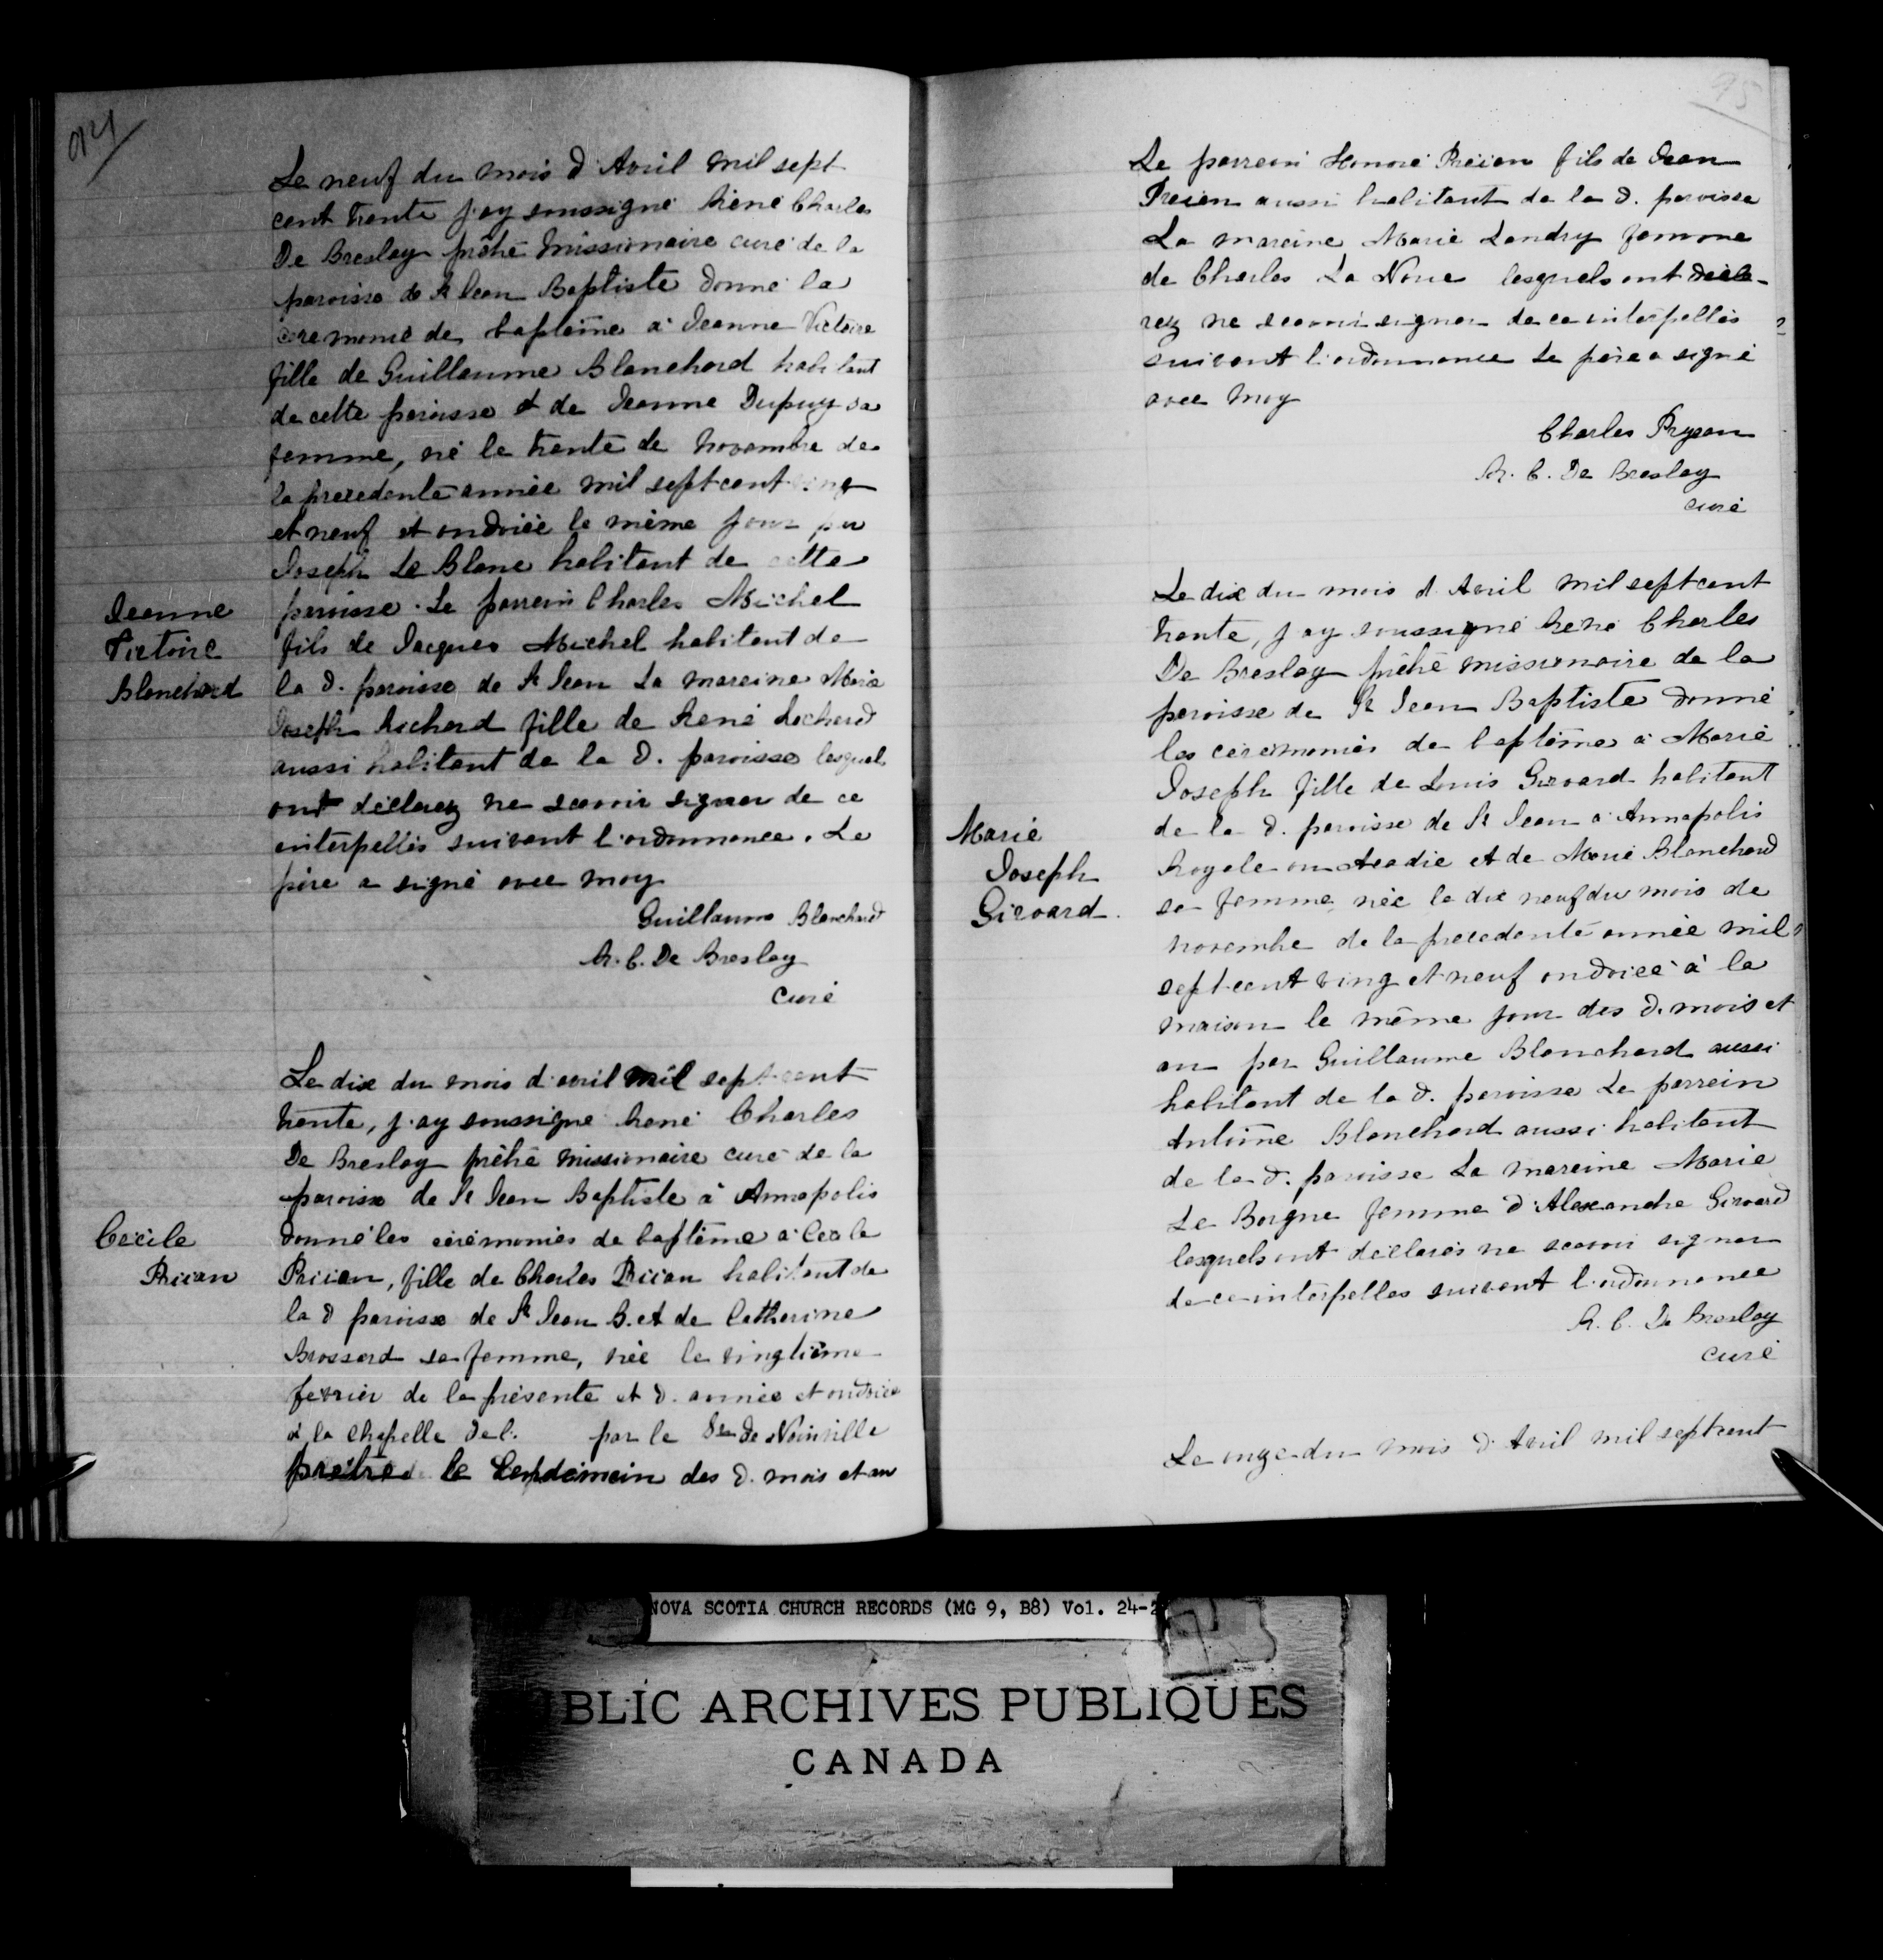 94
Le neuf du mois d'Avril mil sept
cent trente j'ay soussigné René Charles
De Breslay prêtre missionaire curé de la
paroisse de St Jean Baptiste donné la
ceremonie de baptême à Jeanne Victoire
fille de Guillaume Blanchard habitant
de cette paroisse et de Jeanne Dupuy sa
femme, né le trente de novembre de
la precedente année mil sept cent ving
et neuf et ondoiée le même jour par
Joseph Le Blanc habitant de cette
Jeanne
Victoire
Blanchard
paroisse. Le parrein Charles Michel
fils de Jacques Michel habitant de
la d. paroisse de St Jean La mareine Marie
Joseph Richard fille de René Richard
aussi habitant de la d. paroisse lesquels
ont déclarez ne scavoir signer de ce
interpellés suivant l'ordonnance. Le
père a signé avec moy
Guillaume Blanchard
R. C. De Breslay
curé
Le dix du mois d'avril mil sept cent
trente, j'ay soussigné René Charles
De Breslay prêtre missionaire curé de la
paroisse de St Jean Baptiste à Annapolis
Cécile
Priian
donné les cérémonies de baptême à Cecile
Priian, fille de Charles Priian habitant de
la d paroisse de St Jean B. et de Catherine
Brossard sa femme, née le vingtième
fevrier de la présente et d. année et ondoiée
à la chapelle de l. par le Sr de Noinville
prêtre le lendemain des d. mois et an
95
Le parrein Honoré Préian fils de Jean
Preian aussi habitant de la d. paroisse
La mareine Marie Landry femme
de Charles La Noue lesquels ont décla-
rez ne scavoir signer de ce interpellés
suivant l'ordonnance Le père a signé
avec moy
Charles Prysan
R. C. De Breslay
curé
Le dix du mois d'Avril mil sept cent
trente, j'ay soussigné René Charles
De Breslay prêtre missionaire de la
paroisse de St Jean Baptiste donné
les cérémonies de baptême à Marie
Joseph fille de Louis Girouard habitant
Marie
Joseph
Girouard.
de la d. paroisse de St Jean à Annapolis
Royale en Acadie et de Marie Blanchard
sa femme, née le dix neuf du mois de
novembre de la precedente année mil
sept cent ving et neuf ondoiée à la
maison le même jour des d. mois et
an par Guillaume Blanchard aussi
habitant de la d. paroisse Le parrein
Antoine Blanchard aussi habitant
de la d. paroisse La mareine Marie
Le Borgne femme d'Alexandre Girouard
lesquels ont déclarés ne scavoir signer
de ce interpelles suivant l'ordonnance
R. C. De Breslay
curé
Le onze du mois d'Avril mil sept cent
NOVA SCOTIA CHURCH RECORDS (MG 9, B8) Vol. 24-2
BLIC ARCHIVES PUBLIQUES
CANADA